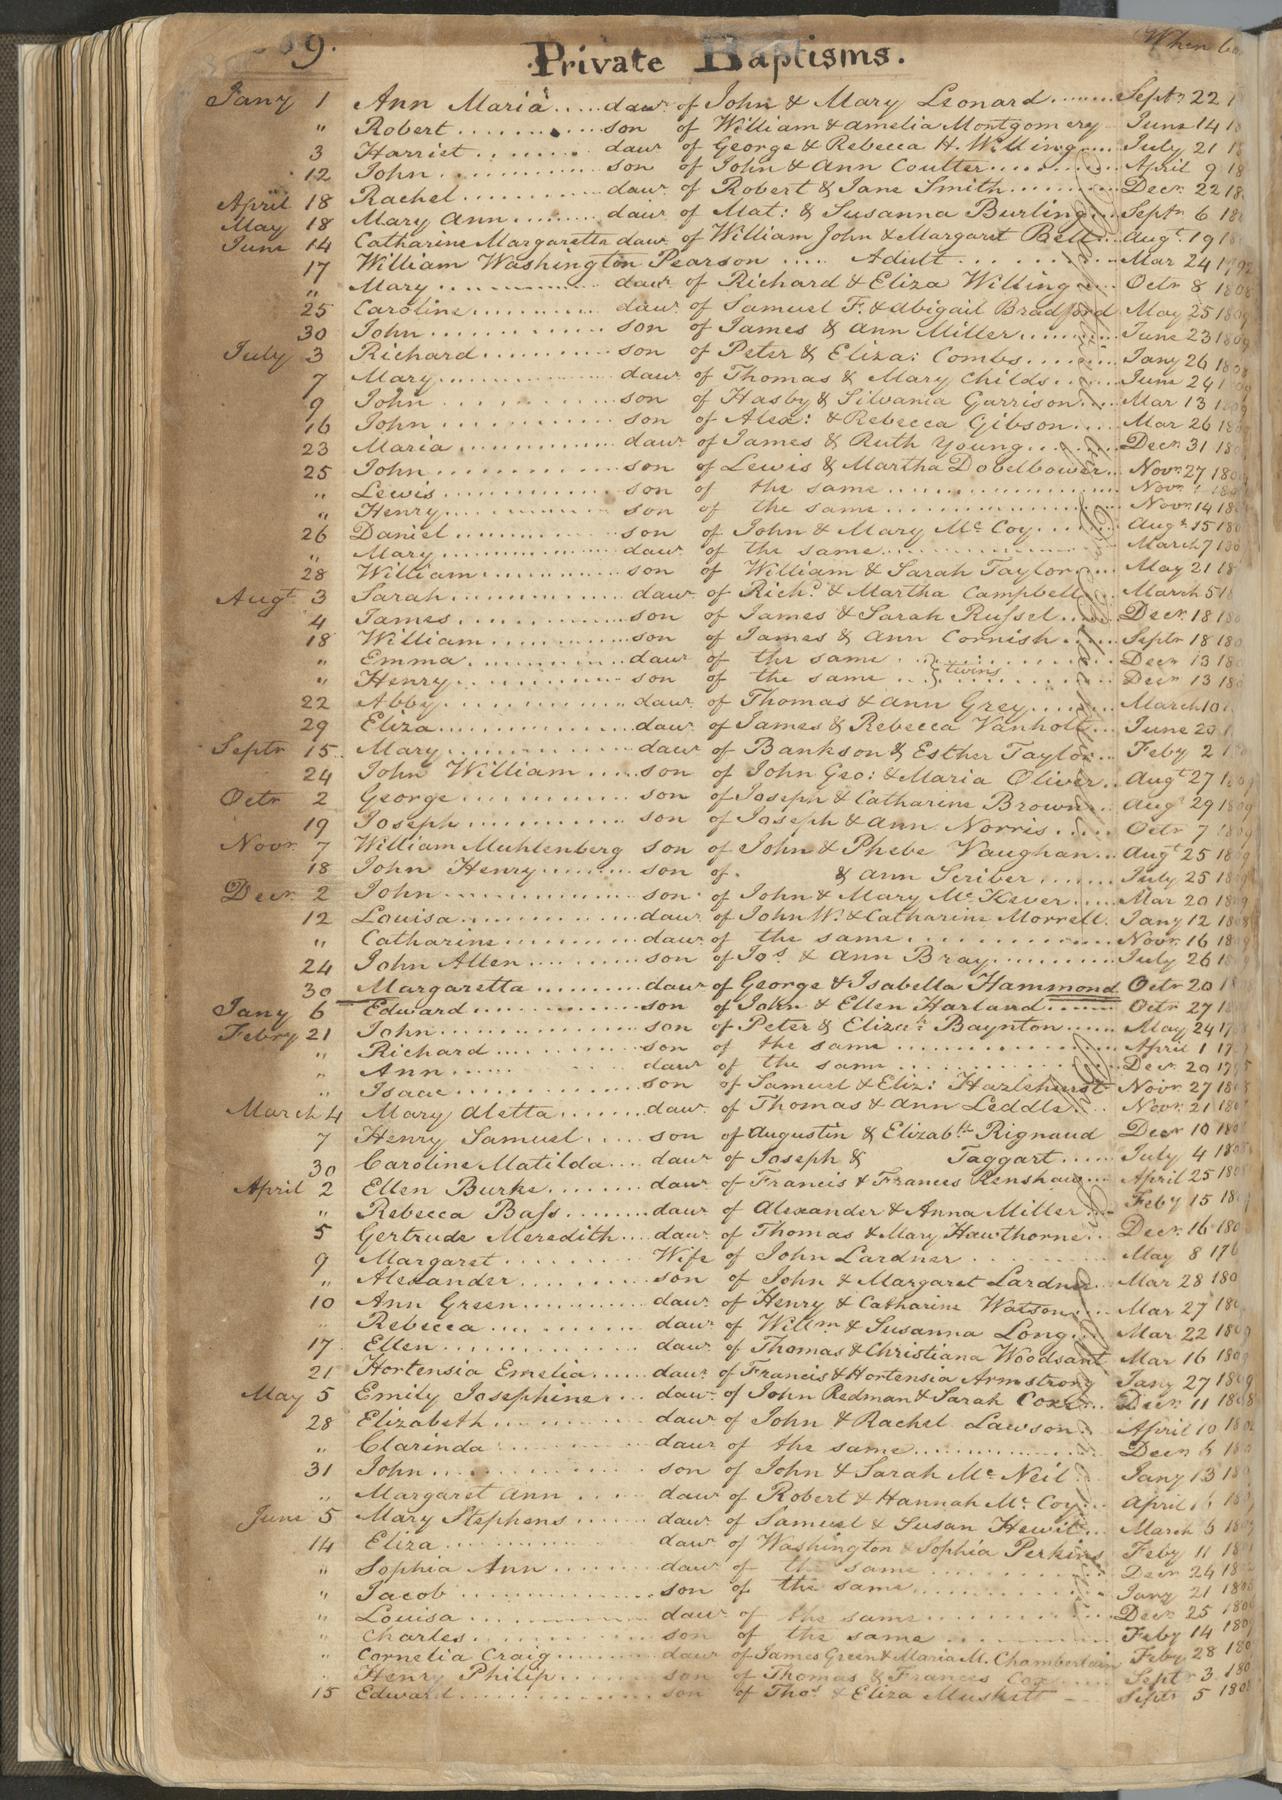 9.
Private Baptisms.
When
Jany 1 Ann Maria ..... dawr of John & Mary Leonard ....... Septr 22
" Robert ........... son of William & Amelia Montgomery June 14
3 Harriet ........ dawr of George & Rebecca H. Willing .... July 21
12 John .............. son of John & Ann Coulter .......... April 9 18
April 18 Rachel ............. dawr of Robert & Jane Smith .......... Decr 22 18
May 18 Mary Ann ......... dawr of Mat: & Susanna Burling ... Septr 6 18
June 14 Catharine Margaretta dawr of William John & Margaret Bell ... Augt 19 18
17 William Washington Pearson ..... Adult ......... Mar 24 1792
" Mary ............... dawr of Richard & Eliza Willing ... Octr 8 1808
25 Caroline ........... dawr of Samuel F. & Abigail Bradford May 25 1809
30 John ............... son of James & Ann Miller ......... June 23 1809
July 3 Richard ........... son of Peter & Eliza: Combs ........ Jany 26 1808
7 Mary ............... dawr of Thomas & Mary Childs ...... June 24 1809
9 John ............. son of Hasby & Silvania Garrison .... Mar 13 1809
16 John ............. son of Alex: & Rebecca Gibson ..... Mar 26 180
23 Maria ............ dawr of James & Ruth Young ........ Decr 31 180
25 John ............. son of Lewis & Martha Dobelbower ... Novr 27 180
" Lewis .............. son of the same ................. Novr
" Henry ............. son of the same ................. Novr 14 18
26 Daniel ............. son of John & Mary Mc Coy ....... Augt 15 180
" Mary ............... dawr of the same .............. March 7 180
28 William ............ son of William & Sarah Taylor ... May 21 18
Augt 3 Sarah ............... dawr of Richd & Martha Campbell March 5 1
4 James .............. son of James & Sarah Russel ...... Decr 18 18
18 William ............ son of James & Ann Cornish ...... Septr 18 180
" Emma ............. dawr of the same ... } twins ....... Decr 13 180
" Henry ............. son of the same ... } ........ Decr 13 180
22 Abby .............. dawr of Thomas & Ann Grey ....... March 10
29 Eliza .............. dawr of James & Rebecca Vanholt ... June 20
Septr 15 Mary .............. dawr of Bankson & Esther Taylor ... Feby 2
24 John William ..... son of John Geo: & Maria Oliver ... Augt 27 1809
Octr 2 George .............. son of Joseph & Catharine Brown ... Augt 29 1809
19 Joseph ............. son of Joseph & Ann Norris ...... Octr 7 1809
Novr 7 William Muhlenberg son of John & Phebe Vaughan ... Augt 25 1809
18 John Henry ......... son of & Ann Scriver ....... July 25 18
Decr 2 John ................ son of John & Mary Mc Kever ..... Mar 20 1809
12 Louisa .............. dawr of John W. & Catharine Morrell. Jany 12 1808
" Catharine .......... dawr of the same ............... Novr 16 180
24 John Allen .......... son of Jos & Ann Bray .......... July 26 18
30 Margaretta .......... dawr of George & Isabella Hammond Octr 20 18
Jany 6 Edward ............. son of John & Ellen Harland ...... Octr 27 18
Febry 21 John ............... son of Peter & Elizah: Baynton ..... May 24 17
" Richard ........... son of the same ................. April 1 17
" Ann ...... dawr of the same ................ Decr 20 1795
" Isaac .............. son of Samuel & Eliz: Hazlehurst Novr 27 180
March 4 Mary Aletta ....... dawr of Thomas & Ann Leddle ... Novr 21 180
7 Henry Samuel ..... son of Augustin & Elizabth Rignaud Decr 10 180
30 Caroline Matilda .... dawr of Joseph & Taggart ...... July 4 180
April 2 Ellen Burke ........ dawr of Francis & Frances Renshaw ... April 25 180
" Rebecca Bass ........ dawr of Alexander & Anna Miller ... Feby 15 180
5 Gertrude Meredith .... dawr of Thomas & Mary Hawthorne ... Decr 16 180
9 Margaret ............ Wife of John Lardner ......... May 8 176
" Alexander ........... son of John & Margaret Lardner ... Mar 28 180
10 Ann Green .......... dawr of Henry & Catharine Watson ... Mar 27 180
Rebecca ............ dawr of Willm & Susanna Long ... Mar 22 1809
17 Ellen .............. dawr of Thomas & Christiana Woodsant Mar 16 180
21 Hortensia Emelia ...... dawr of Francis & Hortensia Armstrong Jany 27 1809
May 5 Emily Josephine .... dawr of John Redman & Sarah Coxe ... Decr 11 1808
28 Elizabeth .......... dawr of John & Rachel Lawson ... April 10 180
" Clarinda .......... dawr of the same ............... Decr 6 180
31 John ............. son of John & Sarah Mc Neil ... Jany 13 180
" Margaret Ann .... dawr of Robert & Hannah Mc Coy ... April 180
June 5 Mary Stephens ...... dawr of Samuel & Susan Hewit ... March 6 180
14 Eliza ............. dawr of Washington & Sophia Perkins Feby 11 18
" Sophia Ann ....... dawr of the same ............. Decr 24 18
" Jacob ............. son of the same ............. Jany 21 180
" Louisa ............ dawr of the same ............. Decr 25 180
" Charles ........... son of the same ............. Feby 14 180
" Cornelia Craig ....... dawr of James Green & Maria M. Chamberlain Feby 28 180
Henry Philip ........ son of Thomas & Frances Cox ...... Septr 3 180
15 Edward ............. son of Thos & Eliza Muskett Septr 5 180